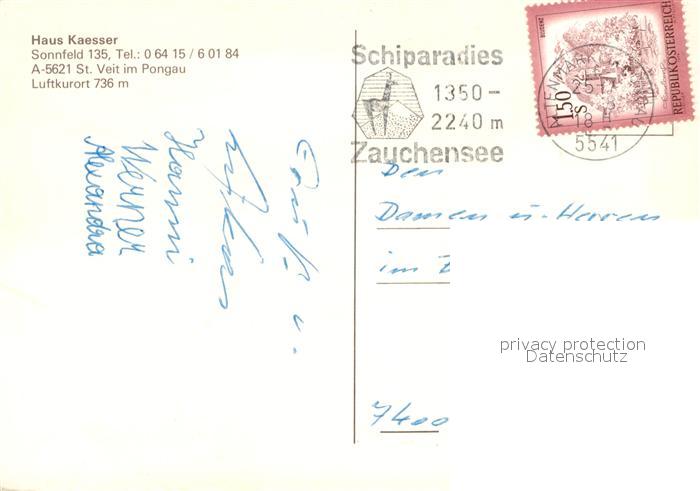 Haus Kaesser
Sonnfeld 135, Tel.: 0 64 15 / 6 01 84
A-5621 St. Veit im Pongau
Luftkurort 736 m
Schiparadies
1350 –
2240 m
Zauchensee
BLUDENZ
1.50
S
REPUBLIK ÖSTERREICH
5541
Gruß u.
Hanni
Werner
Alexandra
Den
Damen u. Herren
im
privacy protection
Datenschutz
7400